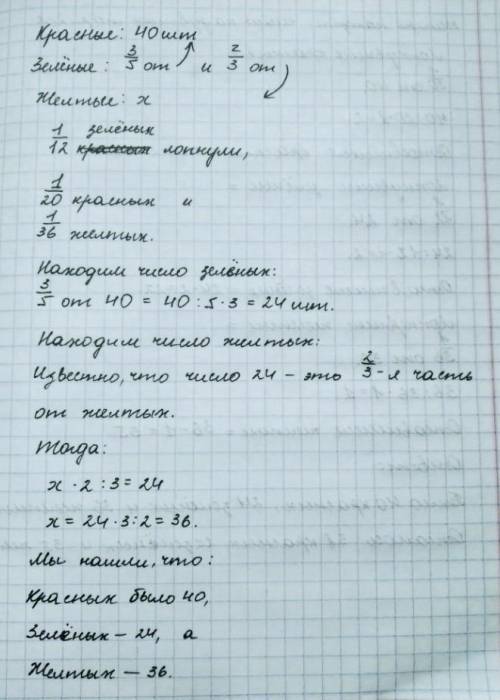 Красные: 40 шт
Зелёные: 3/5 от и 2/3 от
Желтые: x
1/12 зелёных красных лопнули,
1/20 красных и
1/36 желтых.
Находим число зелёных:
3/5 от 40 = 40 : 5 · 3 = 24 шт.
Находим число желтых:
Известно, что число 24 – это 2/3 - я часть
от желтых.
Тогда:
x · 2 : 3 = 24
x = 24 · 3 : 2 = 36.
Мы нашли, что:
Красных было 40,
Зелёных – 24, а
Желтых – 36.